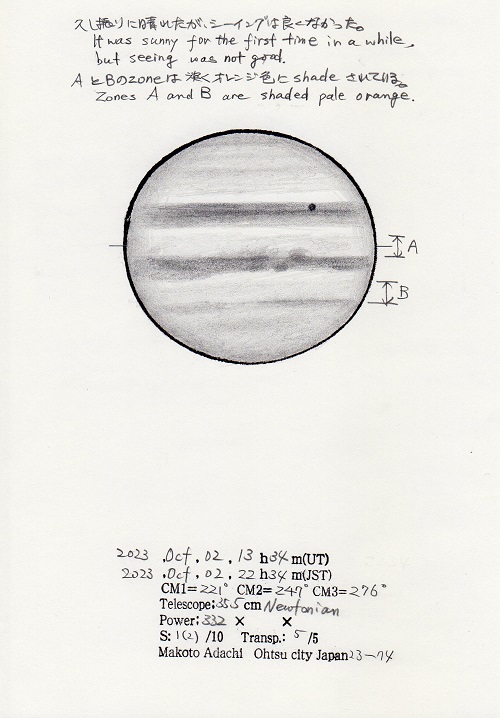 久し振りに晴れたが、シーイングは良くなかった。
It was sunny for the first time in a while,
but seeing was not good.
AとBのzoneは淡くオレンジ色にshadeされている。
Zones A and B are shaded pale orange.
A
B
2023 ,Oct, 02, 13 h34 m(UT)
2023 ,Oct, 02, 22 h34 m(JST)
CM1=221° CM2=247° CM3=276°
Telescope:35.5 cm Newtonian
Power:332 × ×
S: 1(2) /10 Transp.: 5 /5
Makoto Adachi Ohtsu city Japan 23-74